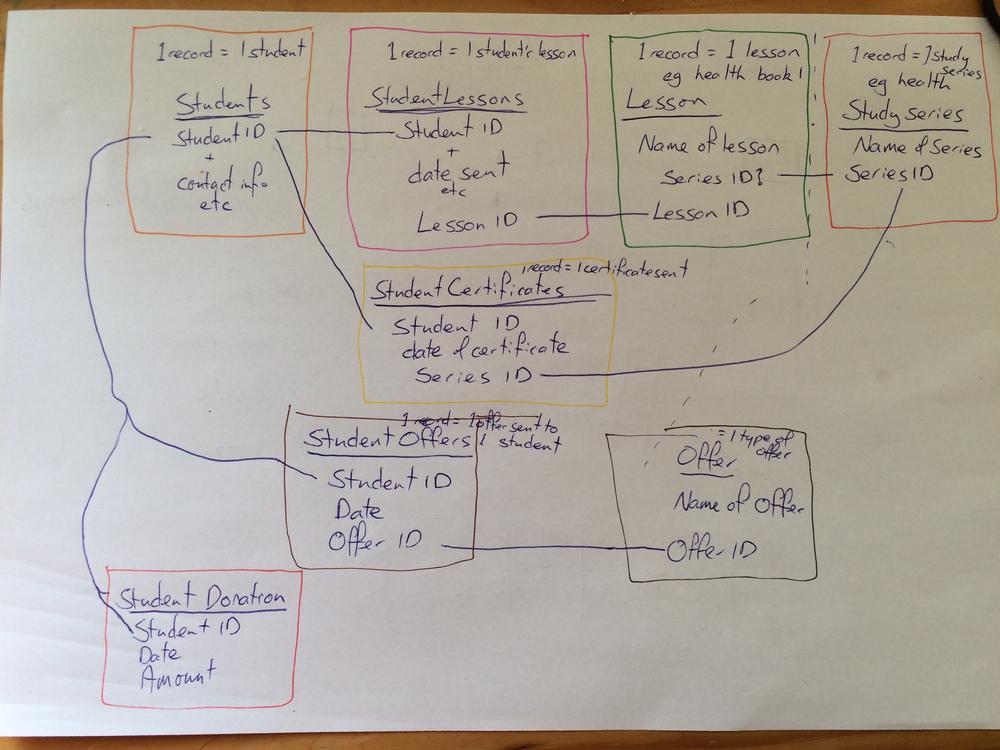 1 record = 1 student
Students
Student ID
+
contact info
etc
1 record = 1 student's lesson
Student Lessons
Student ID
+
date sent
etc
Lesson ID
1 record = 1 lesson
eg health book 1
Lesson
Name of lesson
Series ID?
Lesson ID
1 record = 1 study
series
eg health
Study series
Name of Series
Series ID
1 record = 1 certificate sent
Student Certificates
Student ID
date of certificate
Series ID
1 record = 1 offer sent to
1 student
Student Offers
Student ID
Date
Offer ID
= 1 type of
offer
Offer
Name of Offer
Offer ID
Student Donation
Student ID
Date
Amount